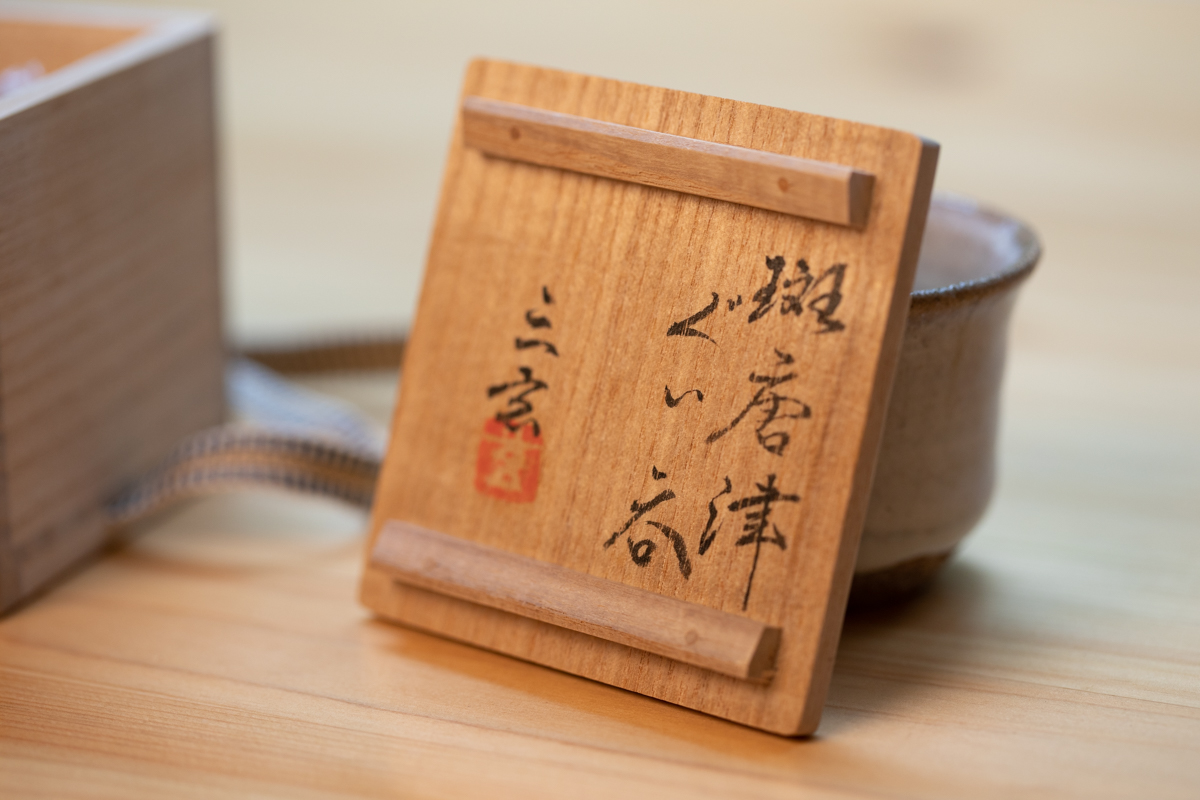 斑唐津
ぐい呑
三玄